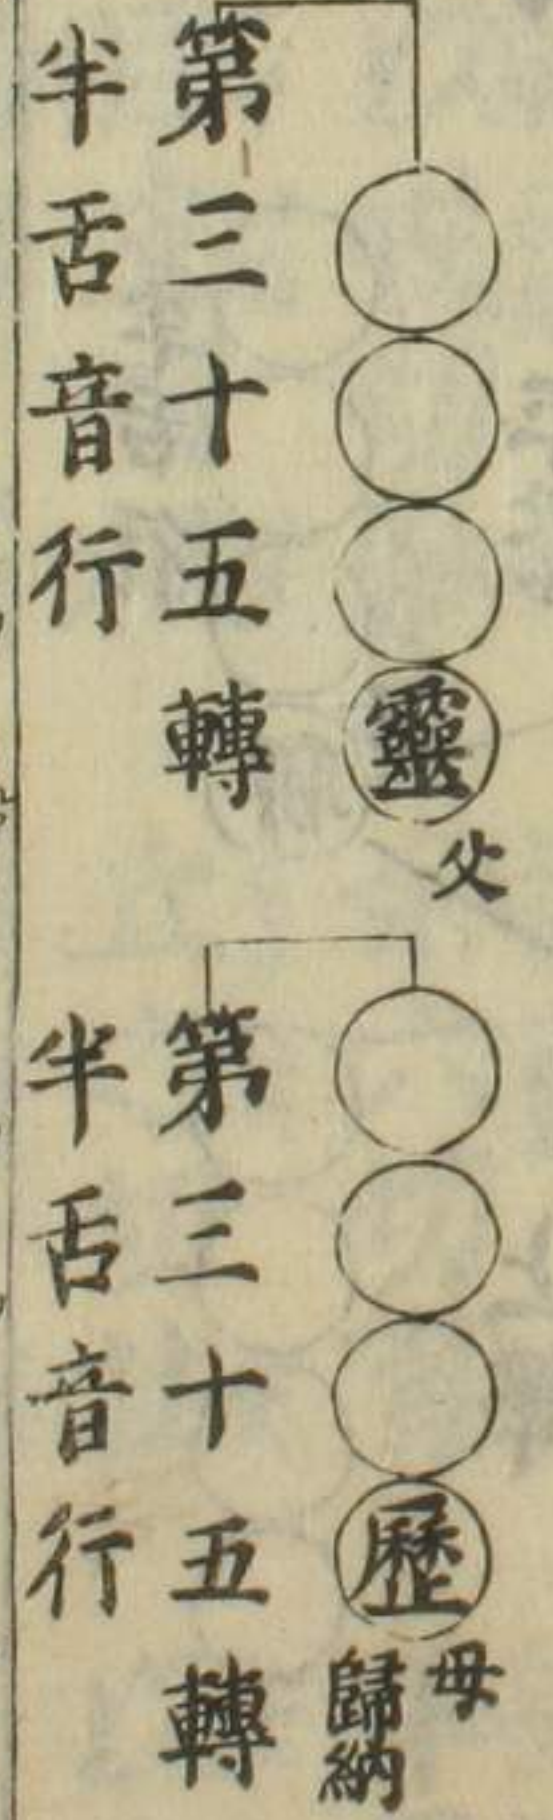 靈
父
第三十五轉
半舌音行
歷
母
歸納
第三十五轉
半舌音行